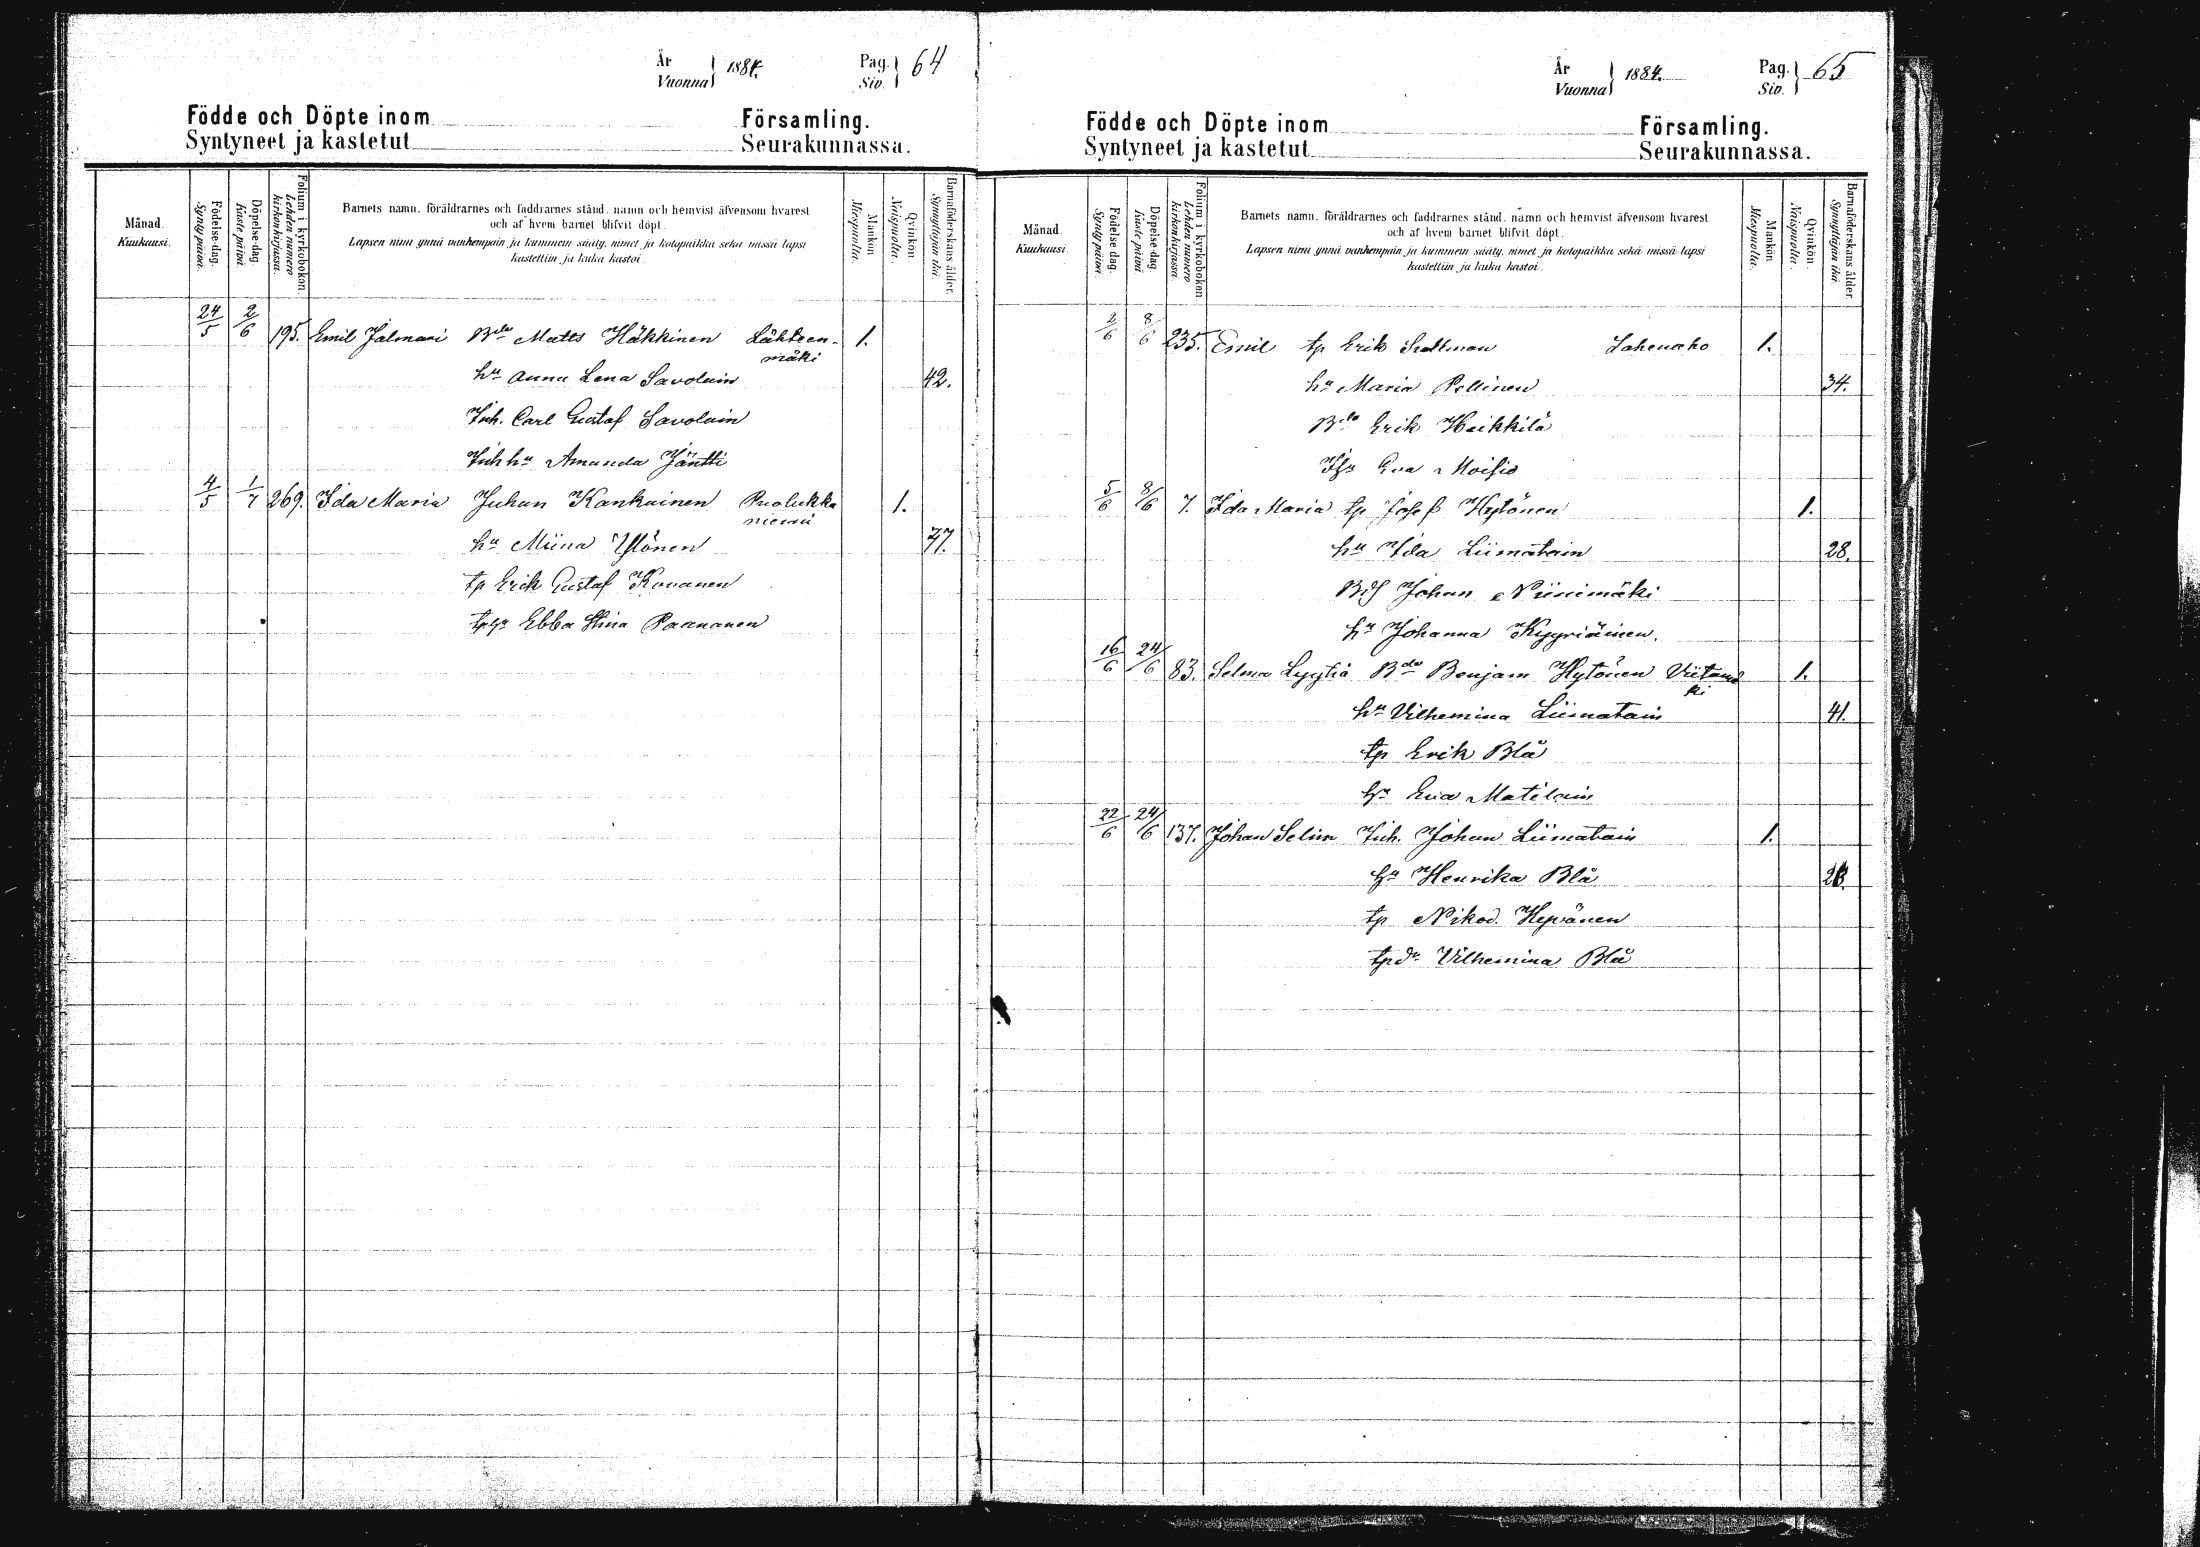 År
Vuonna } 1884.
Pag.
Siv. } 64
Födde och Döpte inom Församling.
Syntyneet ja kastetut Seurakunnassa.
Månad.
Kuukausi.
Födelse-dag.
Synty-päivä.
Döpelse-dag.
Kaste-päivä.
Folium i kyrkoboken.
Lehden numero kirkonkirjassa.
Barnets namn, föräldrarnes och faddrarnes stånd, namn och hemvist äfvensom hvarest
och af hvem barnet blifvit döpt.
Lapsen nimi ynnä vanhempain ja kummein sääty, nimet ja kotopaikka sekä missä lapsi
kastettiin ja kuka kastoi.
Mankön
Miespuolta.
Qvinkön
Naispuolta.
Barnaföderskans ålder.
Synnyttäjän ikä.
24/5 2/6 195. Emil Jalmari Bde Matts Häkkinen Lähteen- 1.
mäki
hu Anna Lena Savolain 42.
Inh. Carl Gustaf Savolain
Inh hu Amanda Jäntti
4/5 1/7 269. Ida Maria Juhan Kankainen Puolukka 1.
niemi
hu Miina Ylönen 47.
tp Erik Gustaf Kovanen
Ebba Stina Paananen
År
Vuonna } 1884.
Pag.
Siv. } 65
Födde och Döpte inom Församling.
Syntyneet ja kastetut Seurakunnassa.
Månad.
Kuukausi.
Födelse-dag.
Synty-päivä.
Döpelse-dag.
Kaste-päivä.
Folium i kyrkoboken.
Lehden numero kirkonkirjassa.
Barnets namn, föräldrarnes och faddrarnes stånd, namn och hemvist äfvensom hvarest
och af hvem barnet blifvit döpt.
Lapsen nimi ynnä vanhempain ja kummein sääty, nimet ja kotopaikka sekä missä lapsi
kastettiin ja kuka kastoi.
Mankön
Miespuolta.
Qvinkön.
Naispuolta.
Barnaföderskans ålder.
Synnyttäjän ikä.
2/6 8/6 235. Emil tp Erik Lahenaho 1.
hu Maria Pellinen 34.
Bde Erik Heikkilä
Eva Moisio
5/6 8/6 7. Ida Maria tp Josef Hytönen 1.
hu Ida Liimatain 28.
Johan Niinimäki
hu Johanna Kyyriäinen.
16/6 24/6 83. Selma Lyytiä Bde Benjam Hytönen 1.
hu Vilhemina Liimatain 41.
tp Erik Blå
hu Eva Matilain
22/6 24/6 137. Johan Selim Inh. Johan Liimatain 1.
hu Henrika Blå
tp Nikod. Hepoänen
Vilhemina Blå